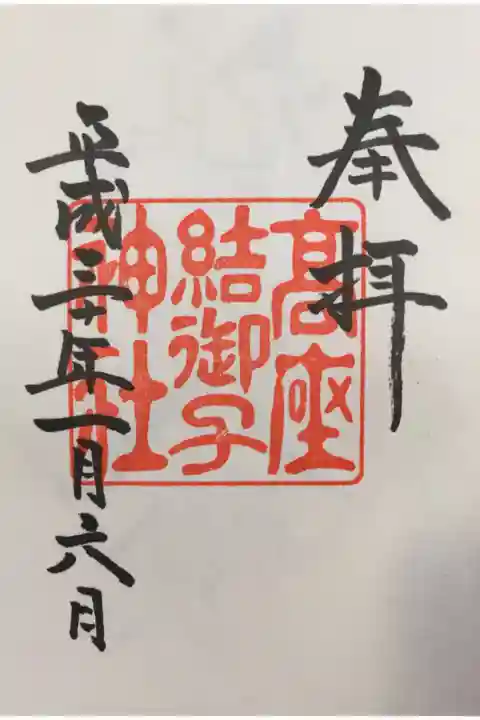 奉拝
髙座
結御子
神社
平成三十年一月六日